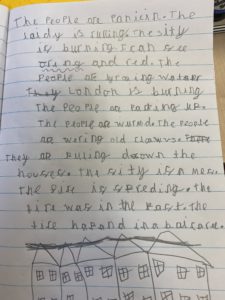 The PeoPle are Panicin. The
laidy is rulling. The sity
is burning I can see
oring and red. The
PeoPle are troing water
They London is burning
The PeoPle are Packing up.
The PeoPle are wurnd. The PeoPle
are wering old
They are Puling down the
houses. The sity is a mess.
The fire is spreding. the
fire was in the Past. The
fire hapand in a